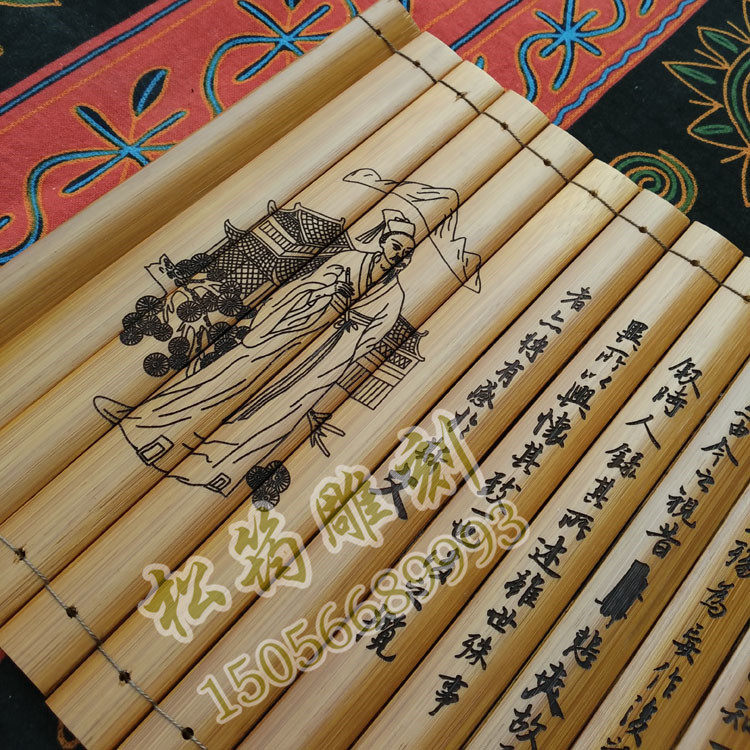 殤為妄作後
由今之視昔悲夫故
敘時人錄其所述雖世殊事
異所以興懷其致一也後之攬
者亦將有感於斯文
松筠雕刻
15056689993